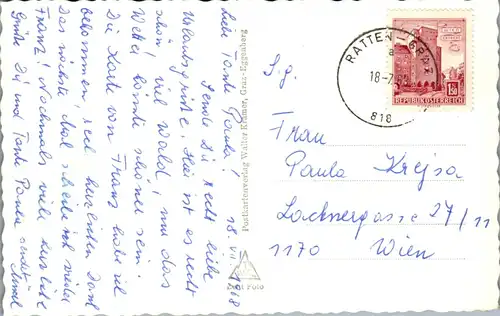 18.VII.1968
Liebe Tante Paula!
Sende Dir recht liebe
Urlaubsgrüße. Hier ist es recht
schön viel Wald, nur das
Wetter könnte schöner sein.
Die Karte von Franz habe ich
bekommen, recht herzlichen Dank
Das nächste Mal schreibe ich wieder
Franz! Nochmals viele herzliche
Grüße Dir und Tante Paula sendet
Postkartenverlag Walter Kramer, Graz - Engelsdorf
Foto
RATTEN
18-7.68
a
818
REPUBLIK ÖSTERREICH
1.50
S.g.
Frau
Paula Krejsa
Lacknergasse 27/11
1170 Wien